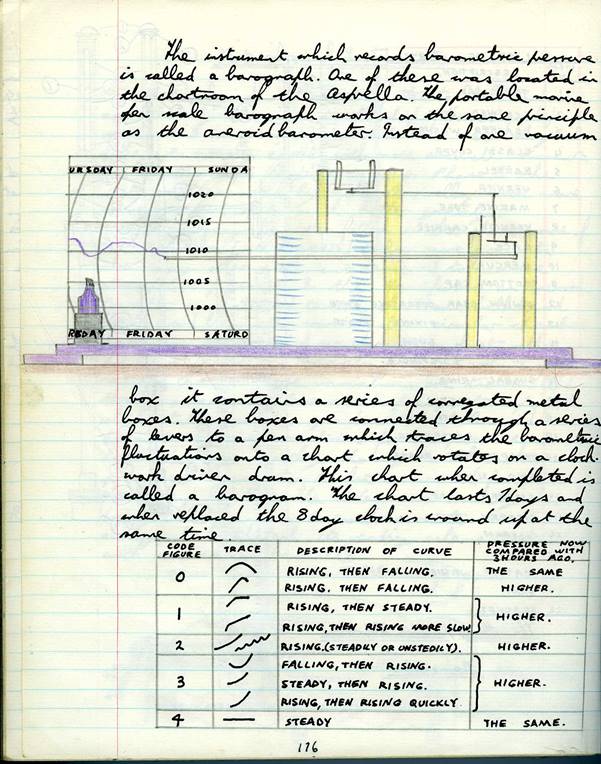 The instrument which records barometric pressure
is called a barograph. One of these was located in
the chartroom of the Asprella. The portable marine
per scale barograph works on the same principle
as the aneroid barometer. Instead of one vacuum
URSDAY FRIDAY SUNDA
1020
1015
1010
1005
1000
RSDAY FRIDAY SATURD
box it contains a series of corrugated metal
boxes. These boxes are connected through a series
of levers to a pen arm which traces the barometric
fluctuations onto a chart which rotates on a clock-
work driven drum. This chart when completed is
called a barogram. The chart lasts 7days and
when replaced the 8day clock is wound up at the
same time.
CODE FIGURE TRACE DESCRIPTION OF CURVE PRESSURE NOW COMPARED WITH 3HOURS AGO.
0 RISING, THEN FALLING. THE SAME
RISING. THEN FALLING. HIGHER.
1 RISING, THEN STEADY. HIGHER.
RISING, THEN RISING MORE SLOW.
2 RISING.(STEADILY OR UNSTEDILY). HIGHER.
FALLING, THEN RISING.
3 STEADY, THEN RISING. HIGHER.
RISING, THEN RISING QUICKLY.
4 STEADY THE SAME.
176